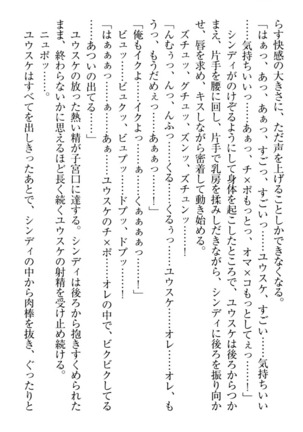 らす快感の大きさに、ただ声を上げることしかできなくなる。
「はぁっ、あっ、あぁっ、すごっ、すごいっ……ユウスケ、すごい……気持ちいい
……気持ちいいっ……あぁっ、チ×ポもっとっ、オマ×コもっとしてぇっ……！」
シンディがのけぞるようにして身体を起こしたところで、ユウスケは後ろからつか
まえ、片手を腰に回し、片手で乳房を揉みしだきながら、シンディに後ろを振り向か
せ、唇を求め、キスしながら密着して動き始める。
ズチュッ、グチュッ、ズンッ、ズチュンッ……！
「んむぅっ、んっ、んふっ……くる……くるぅっ……ユウスケ……オレ……オレ、も
うっ、もうだめぇっ……あぁぁっ……！」
「俺もイクよっ……イクよっ……くぁぁぁっ……！」
ビュッ……ビュクッ、ビュブッ……ドブッ、ドブッ……！
「はぁぁぁっ……あぁぁっ……！ ユウスケのチ×ポ……オレの中で、ビクビクしてる
……あついの出てる……」
ユウスケの放った熱い精が子宮口に達する。シンディは後ろから抱きすくめられた
まま、終わらないかに思えるほど長く続くユウスケの射精を受け止め続ける。
ニュポッ……。
ユウスケはすべてを出しきったあとで、シンディの中から肉棒を抜き、ぐったりと